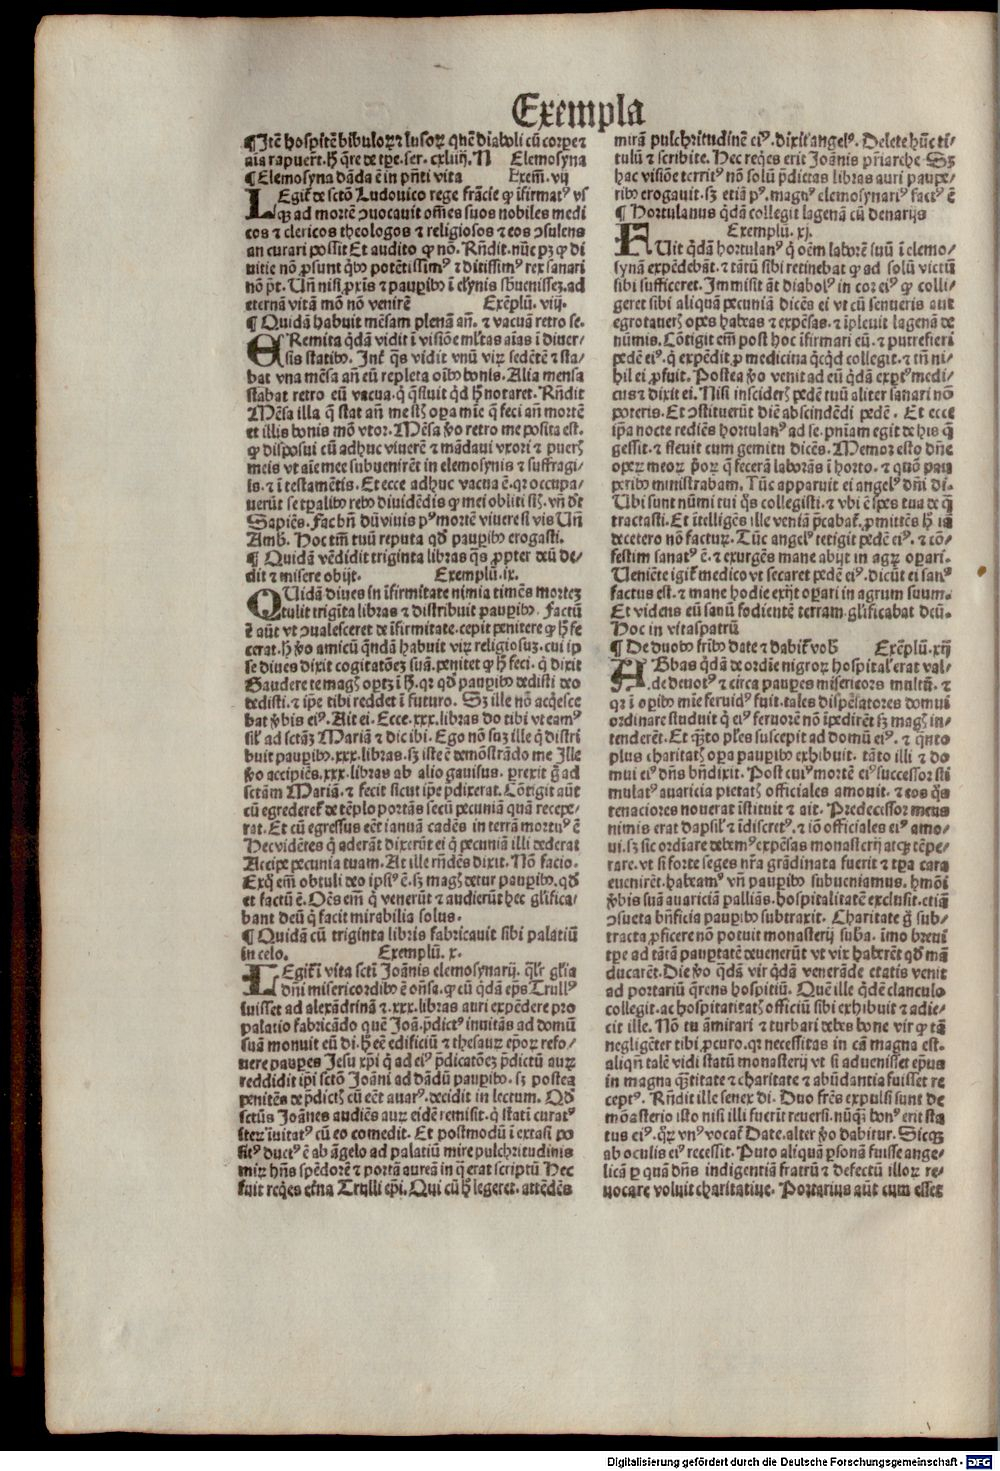 Exempla
¶ Itē hospitē bibuloꝝ ⁊ lusoꝝ quē diaboli cū corpe ⁊
aīa rapuerūt. h̄ q̄re de tp̄e. ser. cxliiij. N Elemosyna
¶ Elemosyna dāda ē in p̄nti vita Exem̄. vij
LEgit᷑ de sctō Ludovico rege frācie ꝙ īfirmatꝰ vs
q̄ꝫ ad mortē ꝯuocauit om̄es suos nobiles medi
cos ⁊ clericos theologos ⁊ religiosos ⁊ eos ꝯsulens
an curari possit Et audito ꝙ nō. Rn̄dit. nūc pꝫ ꝙ di
uitie nō ꝓsunt q̄ꝛ potētissimꝰ ⁊ ditissimꝰ rex sanari
nō p̄t. Vn̄ nisi ꝓxīs ⁊ pauꝑibꝰ ī elynis sb̄uenissez. ad
eternā vitā mō nō venirē Exēplū. viij.
¶ Quidā habuit mēsam plenā an̄. ⁊ vacuā retro se.
ERemita q̄dā vidit ī visiōe ml̄tas aīas ī diuer/
sis statibꝰ. Int̄ q̄s vidit vnū viꝝ sedētē ⁊ sta/
bat vna mēsa an̄ eū repleta oībꝰ bonis. Alia mensa
stabat retro eū vacua. q̄ q̄siuit qd̄ h̄ notaret. Rn̄dit
Mēsa illa q̄ stat an̄ me st̄ oꝑa mīe q̄ feci an̄ mortē
et illis bonis mō vtor. Mēsa ꝟo retro me posita est.
ꝙ disposui cū adhuc viuerē ⁊ mādaui vxori ⁊ pueris
meis vt aīe mee subuenirēt in elemosynis ⁊ suffragi/
is. ⁊ ī testamētis. Et ecce adhuc vacua ē. qꝛ occupa/
uerūt se tꝑalibꝰ rebꝰ diuidēdis ꝙ mei obliti st̄. vn̄ dt̄
Sapiēs. Fac bn̄ dū viuis pꝰ mortē viuere si vis Vn̄
Amb. Hoc tm̄ tuū reputa qd̄ pauꝑibꝰ erogasti.
¶ Quidā vēdidit triginta libras q̄s ꝓpter deū de/
dit ⁊ misere obijt. Exemplū. ix.
QUidā diues in īfirmitate nimia timēs mortez
tulit trigīta libras ⁊ distribuit pauꝑibꝰ. Factū
ē aūt vt ꝯualesceret de īfirmitate. cepit penitere ꝙ h̄ fe
cerat. h̄ ꝟo amicū q̄ndā habuit viꝝ religiosuz. cui ip
se diues dixit cogitatōez suā. penitet ꝙ h̄ feci. q̄ dixit
Gaudere te magꝭ oportꝫ ī h̄. qꝛ qd̄ pauꝑibꝰ dedisti deo
dedisti. ⁊ ip̄e tibi reddet ī futuro. Sꝫ ille nō acq̄esce
bat ꝟbis eiꝰ. Ait ei. Ecce. xxx. libras do tibi vt eamꝰ
sil̄ ad sctāꝫ Mariā ⁊ dic ibi. Ego nō suꝫ ille q̄ distri
buit pauꝑibꝰ. xxx. libras. sꝫ iste ē demōstrādo me Ille
ꝟo accipiēs. xxx. libras ab alio gauisus. ꝑrexit g̊ ad
sctām Mariā. ⁊ fecit sicut ip̄e p̄dixerat. Cōtigit aūt
cū egrederet᷑ de tēplo portās secū pecuniā quā recepe/
rat. Et cū egressus eēt ianuā cadēs in terrā mortuꝰ ē
Hec vidētes q̄ aderāt dixerūt ei q̄ pecuniā illi dederat
Accipe pecunia tuam. At ille rn̄dēs dixit. Nō facio.
Exq̄ em̄ obtuli deo ipsiꝰ ē. sꝫ magꝭ detur pauꝑibꝰ. qd̄
et factū ē. Oēs em̄ q̄ venerūt ⁊ audierūt hec gl̄ifica/
bant deū q̄ facit mirabilia solus.
¶ Quidā cū triginta libris fabricauit sibi palatiū
in celo. Exemplū. x.
LEgit᷑ ī vita sctī Joānis elemosynarij. ql̄r gl̄ia
dn̄i misericordibꝰ ē oñsa. ꝙ cū q̄dā ep̄s Trullꝰ
fuisset ad alexādrinā ⁊. xxx. libras auri expēdere pro
palatio fabricādo quē Joā. p̄dictꝰ inuitās ad domū
suā monuit eū di. h̄ eē edificiū ⁊ thesauꝝ ep̄oꝝ refo/
uere pauꝑes Jesu xp̄i q̄ ad eiꝰ p̄dicatōez p̄dictū auꝝ
reddidit ip̄i sctō Joāni ad dādū pauꝑibꝰ. sꝫ postea
penitēs de p̄dictꝭ cū eēt auarꝰ. decidit in lectum. Qd̄
sctūs Joānes audiēs auꝝ eidē remisit. q̄ statī curatꝰ
iteꝝ īuitatꝰ cū eo comedit. Et postmodū ī extasi po
sitꝰ ductꝰ ē ab āgelo ad palatiū mire pulchritudinis
miꝝ hn̄s spēdorē ⁊ portā aureā in q̄ erat scriptū Hec
fuit reqͥes et̄na Trulli ep̄i. Qui cū h̄ legeret. attēdēs
mirā pulchritudinē eiꝰ. dixit angelꝰ. Delete hūc ti/
tulū ⁊ scribite. Hec reqͥes erit Joānis pr̄iarche. Sꝫ
hac visiōe territꝰ nō solū p̄dictas libras auri pauꝑe/
ribꝰ erogauit. sꝫ etiā pꝰ. magnꝰ elemosynariꝰ factꝰ ē
¶ Hortulanus q̄dā collegit lagenā cū denarijs
Exemplū. xj.
FUit q̄dā hortulanꝰ q̄ oēm laborē suū ī elemo/
synā expēdebāt. ⁊ tātū sibi retinebat ꝙ ad solū victū
sibi sufficeret. Immisit āt diabolꝰ in cor eiꝰ ꝙ colli/
geret sibi aliquā pecuniā dicēs ei vt cū senueris aut
egrotauerꝭ opes habeas ⁊ expēsas. ⁊ īpleuit lagenā de
nūmis. Cōtigit em̄ post hoc īfirmari eū. ⁊ putrefieri
pedē eiꝰ. q̄ expēdit ꝓ medicina qͥcqͥd collegit. ⁊ tn̄ ni/
hil ei ꝓfuit. Postea ꝟo venit ad eū q̄dā exꝑtꝰ medi/
cus ⁊ dixit ei. Nisi insciderꝭ pedē tuū aliter sanari nō
poteris. Et ꝯstituerūt diē abscindēdi pedē. Et ecce
ip̄a nocte rediēs hortulanꝰ ad se. pn̄iam egit de his q̄
gessit. ⁊ fleuit cum gemitu dicēs. Memor esto dn̄e
opeꝝ meoꝝ p̄oꝝ q̄ fecerā laborās ī horto. ⁊ quō pau
ꝑibꝰ ministrabam. Tūc apparuit ei angelꝰ dn̄i di.
Ubi sunt nūmi tui q̄s collegisti. ⁊ vbi ē spes tua de q̄
tractasti. Et ītelligēs ille veniā p̄cabat᷑. ꝓmittēs h̄ ia
decetero nō factuꝝ. Tūc angelꝰ tetigit pedē eiꝰ. ⁊ cō/
festim sanatꝰ ē. ⁊ exurgēs mane abijt in agꝝ oꝑari.
Veniēte igit᷑ medico vt secaret pedē eiꝰ. dicūt ei sanꝰ
factus est. ⁊ mane hodie exijt oꝑari in agrum suum.
Et videns eū sanū fodientē terram. gl̄ificabat deū.
Hoc in vitaspatrū
¶ De duobꝰ fr̄ibꝰ date ⁊ dabit᷑ vob̄ Exēplū. xij
ABbas q̄dā de ordīe nigroꝝ hospital̄ erat val/
de deuotꝰ ⁊ circa pauꝑes misericors multū. ⁊
qꝛ ī oꝑibꝰ mīe feruidꝰ fuit. tales dispēsatores domui
ordinare studuit q̄ eiꝰ feruorē nō īpedirēt sꝫ magꝭ in/
tenderēt. Et q̄to pl̄es suscepit ad domū eiꝰ. ⁊ q̄nto
plus charitatꝭ oꝑa pauꝑibꝰ exhibuit. tāto illi ⁊ do
mui eiꝰ dn̄s bn̄dixit. Post cuiꝰ mortē eiꝰ successor sti
mulatꝰ auaricia pietatꝭ officiales amouit. ⁊ eos q̄s
tenaciores nouerat īstituit ⁊ ait. Predecessor meus
nimis erat dapsil̄ ⁊ īdiscretꝰ. ⁊ iō officiales eiꝰ amo/
ui. sꝫ sic ordiare debemꝰ expēsas monasterij atqꝫ tēpe/
rare. vt si forte seges nr̄a grādinata fuerit ⁊ tꝑa cara
euenirēt. habeamꝰ vn̄ pauꝑibꝰ subueniamus. hmōi
ꝟbis suā auariciā palliās. hospitalitatē exclusit. etiā
ꝯsueta bn̄ficia pauꝑibꝰ subtraxit. Charitate g̊ sub/
tracta ꝓficere nō potuit monasterij suba. īmo breui
tꝑe ad tātā pauꝑtatē deuenerūt vt vix haberēt qd̄ mā
ducarēt. Die ꝟo q̄dā vir q̄dā venerāde etatis venit
ad portariū q̄rens hospitiū. Quē ille q̄dē clanculo
collegit. ac hospitatitatꝭ officiū sibi exhibuit ⁊ adie/
cit ille. Nō tu āmirari ⁊ turbari debes bone vir ꝙ tā
negligēter tibi ꝓcuro. qꝛ necessitas in cā magna est.
aliqn̄ talē vidi statū monasterij vt si aduenisset ep̄us
in magna q̄titate ⁊ charitate ⁊ abūdantia fuisset re
ceptꝰ. Rn̄dit ille senex di. Duo fr̄es expulsi sunt de
mōasterio isto nisi illi fuerūt reuersi. nūq̄ꝫ bonꝰ erit sta
tus eiꝰ. q̄ꝝ vnꝰ vocat᷑ Date. alter ꝟo dabitur. Sicqꝫ
ab oculis eiꝰ recessit. Puto aliquā ꝑsonā fuisse ange/
licā ꝑ quā dn̄s indigentiā fratrū ⁊ defectū illoꝝ re/
uocare voluit charitatiue. Portarius aūt cum esset
Digitalisierung gefördert durch die Deutsche Forschungsgemeinschaft - DFG